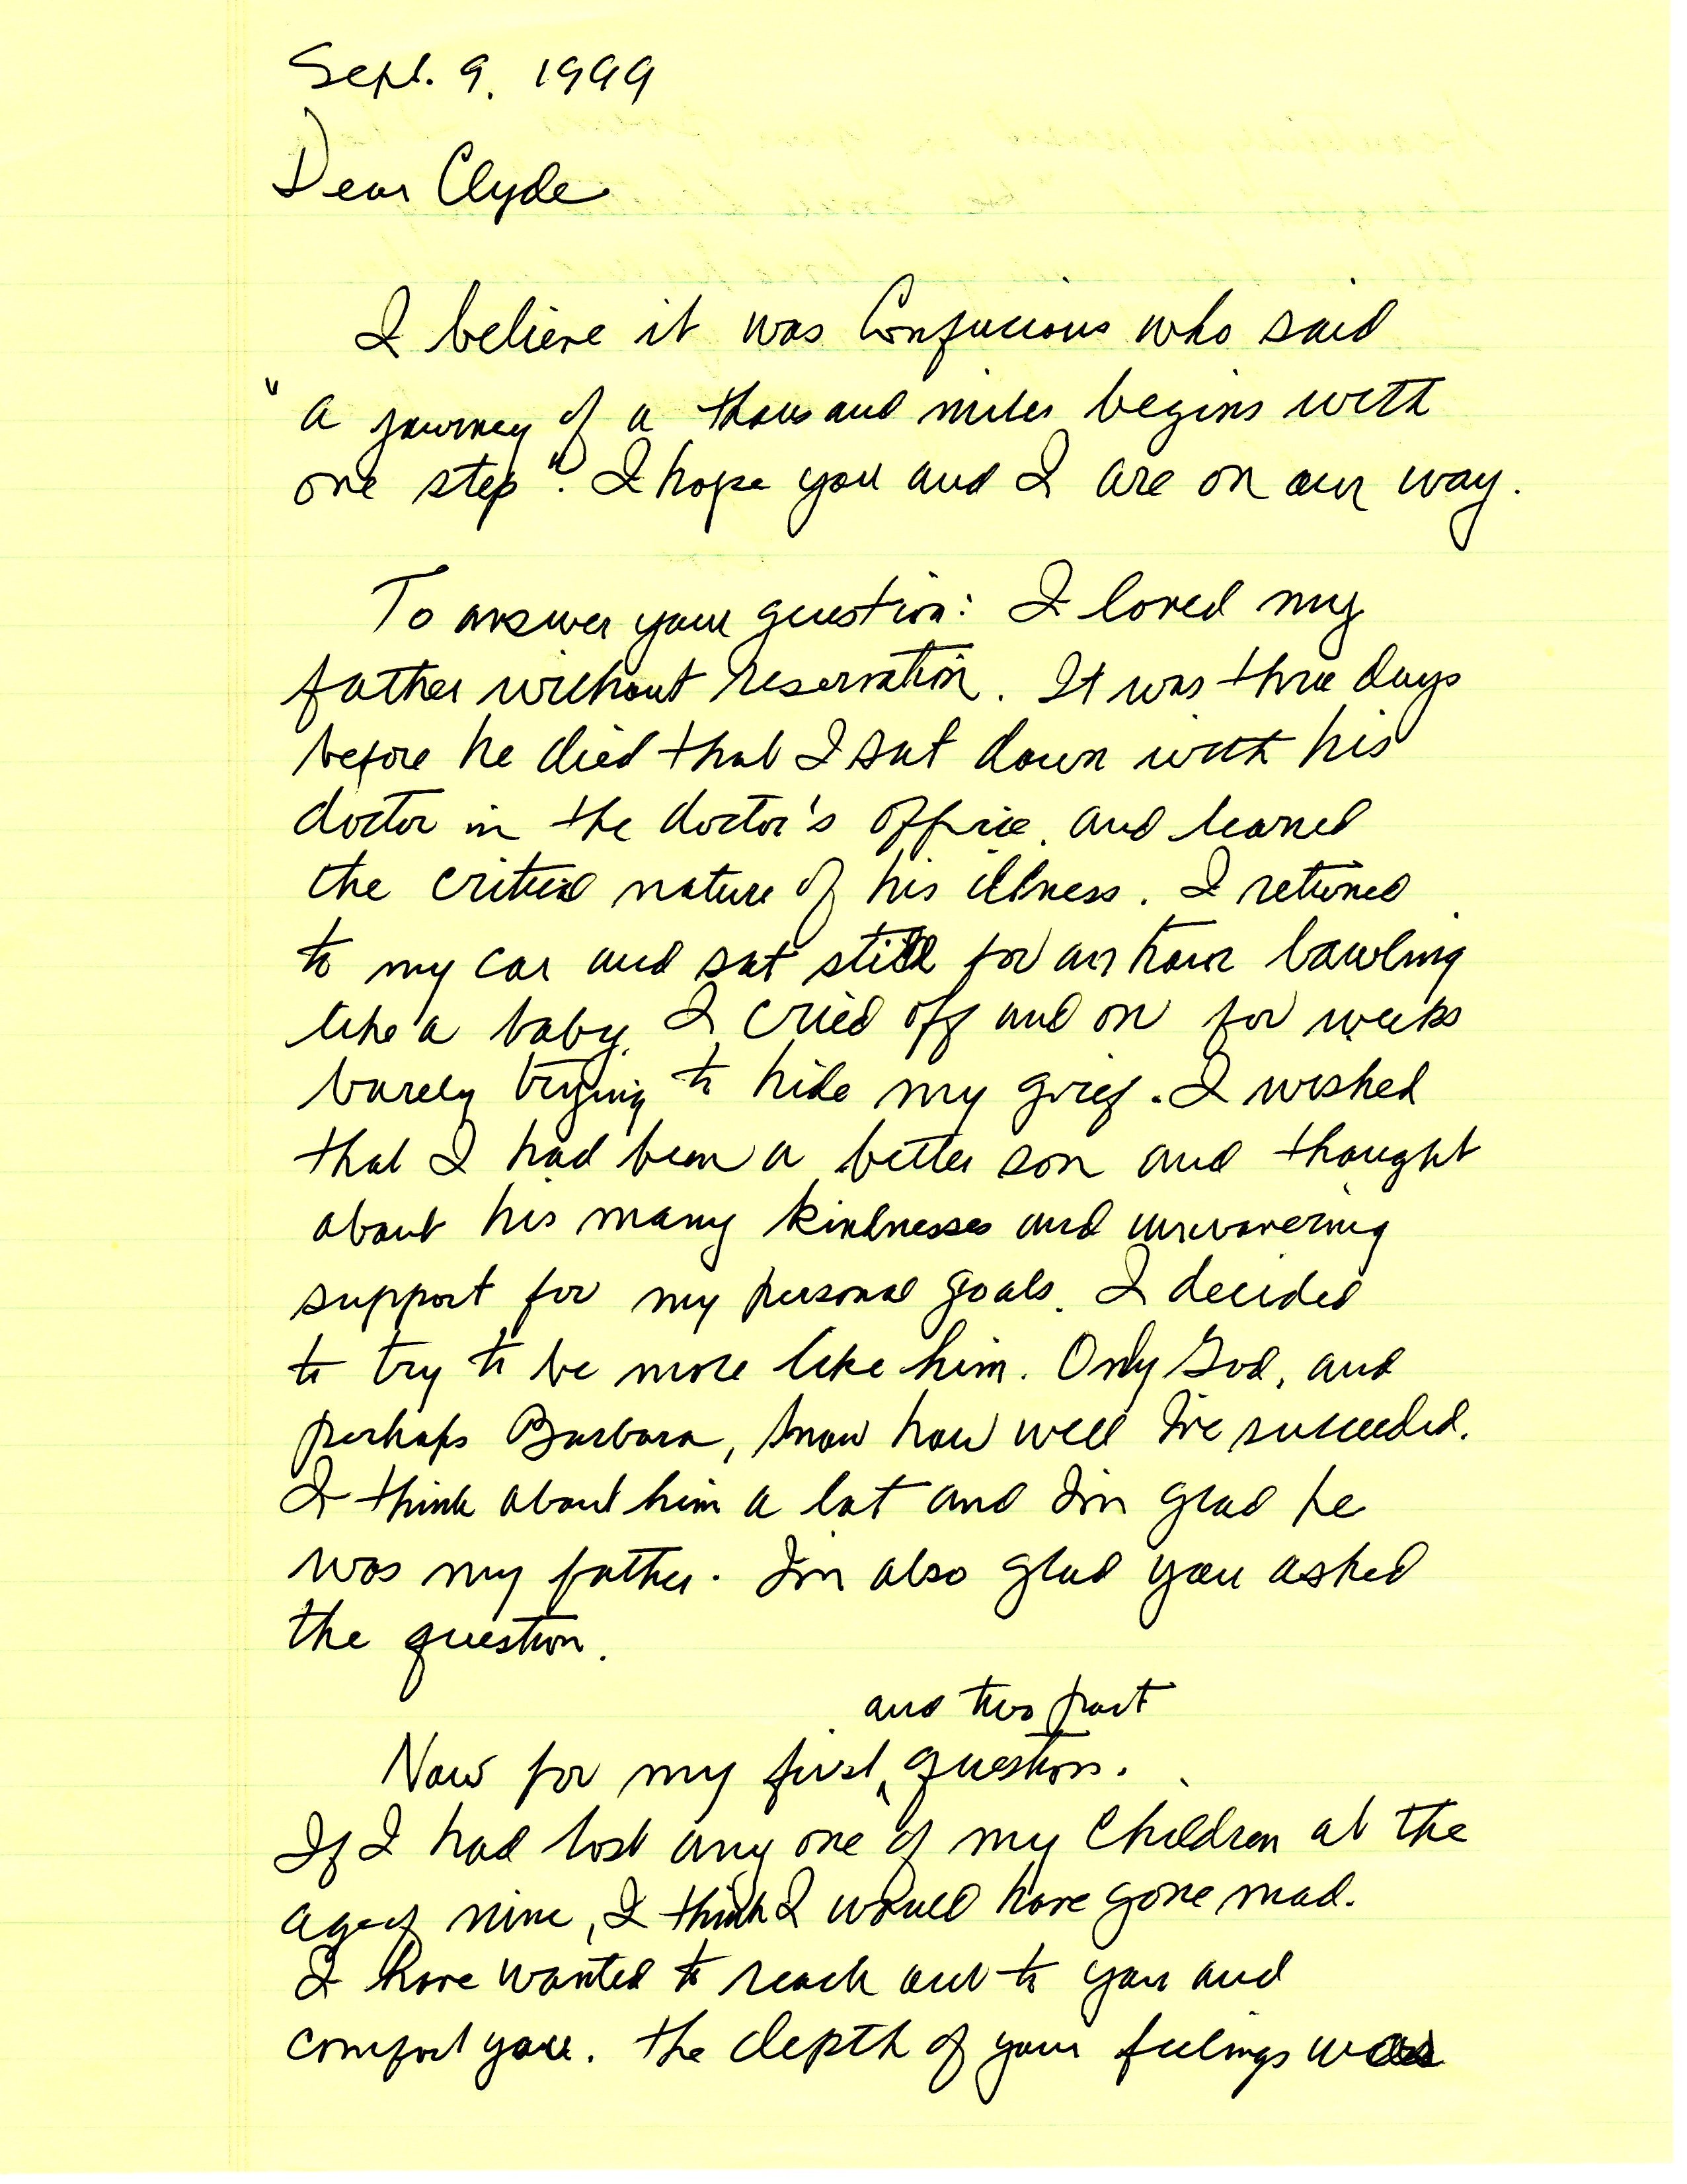 Sept. 9. 1999
Dear Clyde
I believe it was Confucious who said
"a journey of a thousand miles begins with
one step". I hope you and I are on our way.
To answer your question: I loved my
father without reservation. It was three days
before he died that I sat down with his
doctor in the doctor's office and learned
the critical nature of his illness. I returned
to my car and sat still for an hour bawling
like a baby. I cried off and on for weeks
barely trying to hide my grief. I wished
that I had been a better son and thought
about his many kindnesses and unwavering
support for my personal goals. I decided
to try to be more like him. Only God, and
perhaps Barbara, know how well I've succeeded.
I think about him a lot and I'm glad he
was my father. I'm also glad you asked
the question.
and two part
Now for my first ‸ question.
If I had lost any one of my children at the
age of nine, I think I would have gone mad.
I have wanted to reach out to you and
comfort you. The depth of your feelings was